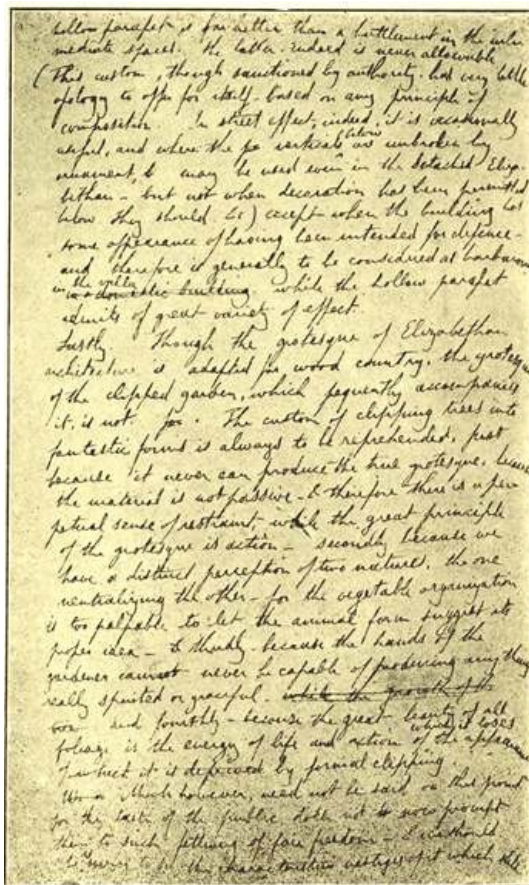 hollow parapet, is far better than a battlement in the inter
mediate spaces. The latter indeed is never allowable
(This custom, though sanctioned by authority, has very little
apology to offer for itself - based on any principle of
composition. In street effect, indeed, it is occasionally
useful, and where the verticals below are unbroken by
ornament, & may be used even in the detached Eliza
bethan - but not when decoration has been permitted
below they should be) except when the building has
some appearance of having been intended for defence -
and therefore is generally to be considered as barbarous
in the villa
in a domestic building while the hollow parapet
admits of great variety of effect.
Lastly Though the grotesque of Elizabethan
architecture is adapted for wood country, the grotesque
of the clipped garden, which frequently accompanies
it, is not for. The custom of clipping trees into
fantastic forms is always to be reprehended, first
because it never can produce the true grotesque, because
the material is not passive - & therefore there is a per
petual sense of restraint, while the great principle
of the grotesque is action - secondly because we
have a distinct perception of two natures, the one
neutralizing the other - for the vegetable organization
is too palpable to let the animal form suggest its
proper idea - & thirdly - because the hands of the
gardener cannot never be capable of producing any thing
really spirited or graceful - while the growth of the
and fourthly - because the great beauty of all
foliage is the energy of life and action which it loses
of which it is deprived by formal clipping. of the appearance
Much however, need not be said on this ground
for the taste of the public, does not now prompt
them to such fettering of fair freedom - & we should
be sorry to the characteristic vestiges of it which